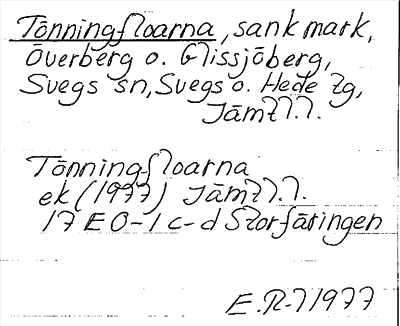 Tönningfloarna, sank mark,
Överberg o. Glissjöberg,
Svegs sn, Svegs o. Hede tg,
Jämtl.l.
Tönningfloarna
ek (1977) Jämtl.l.
17 E 0-1 c-d Storfåringen
E.R-l 1977